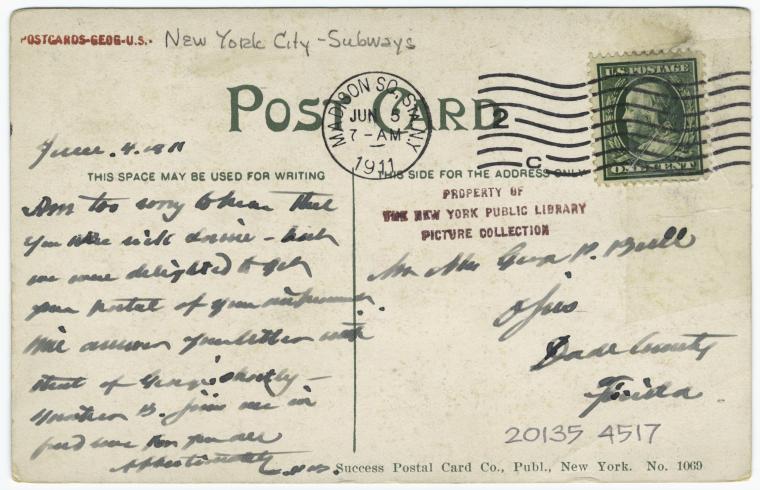 POSTCARDS-GEOG-U.S.
New York City - Subways
POST CARD
MADISON SQ. STA. N.Y.
JUN 5
7-AM
1911
2
C
U.S. POSTAGE
ONE CENT
THIS SPACE MAY BE USED FOR WRITING
THIS SIDE FOR THE ADDRESS ONLY
PROPERTY OF
THE NEW YORK PUBLIC LIBRARY
PICTURE COLLECTION
June. 4. 1911
Am too sorry to hear that
you were sick
we were delighted to get
your postal of your
Will answer your letter with
that of shortly -
B. joins me in
love for you all
Affectionately
Mr
Ojus
Dade County
Florida
20135 4517
Success Postal Card Co., Publ., New York. No. 1069